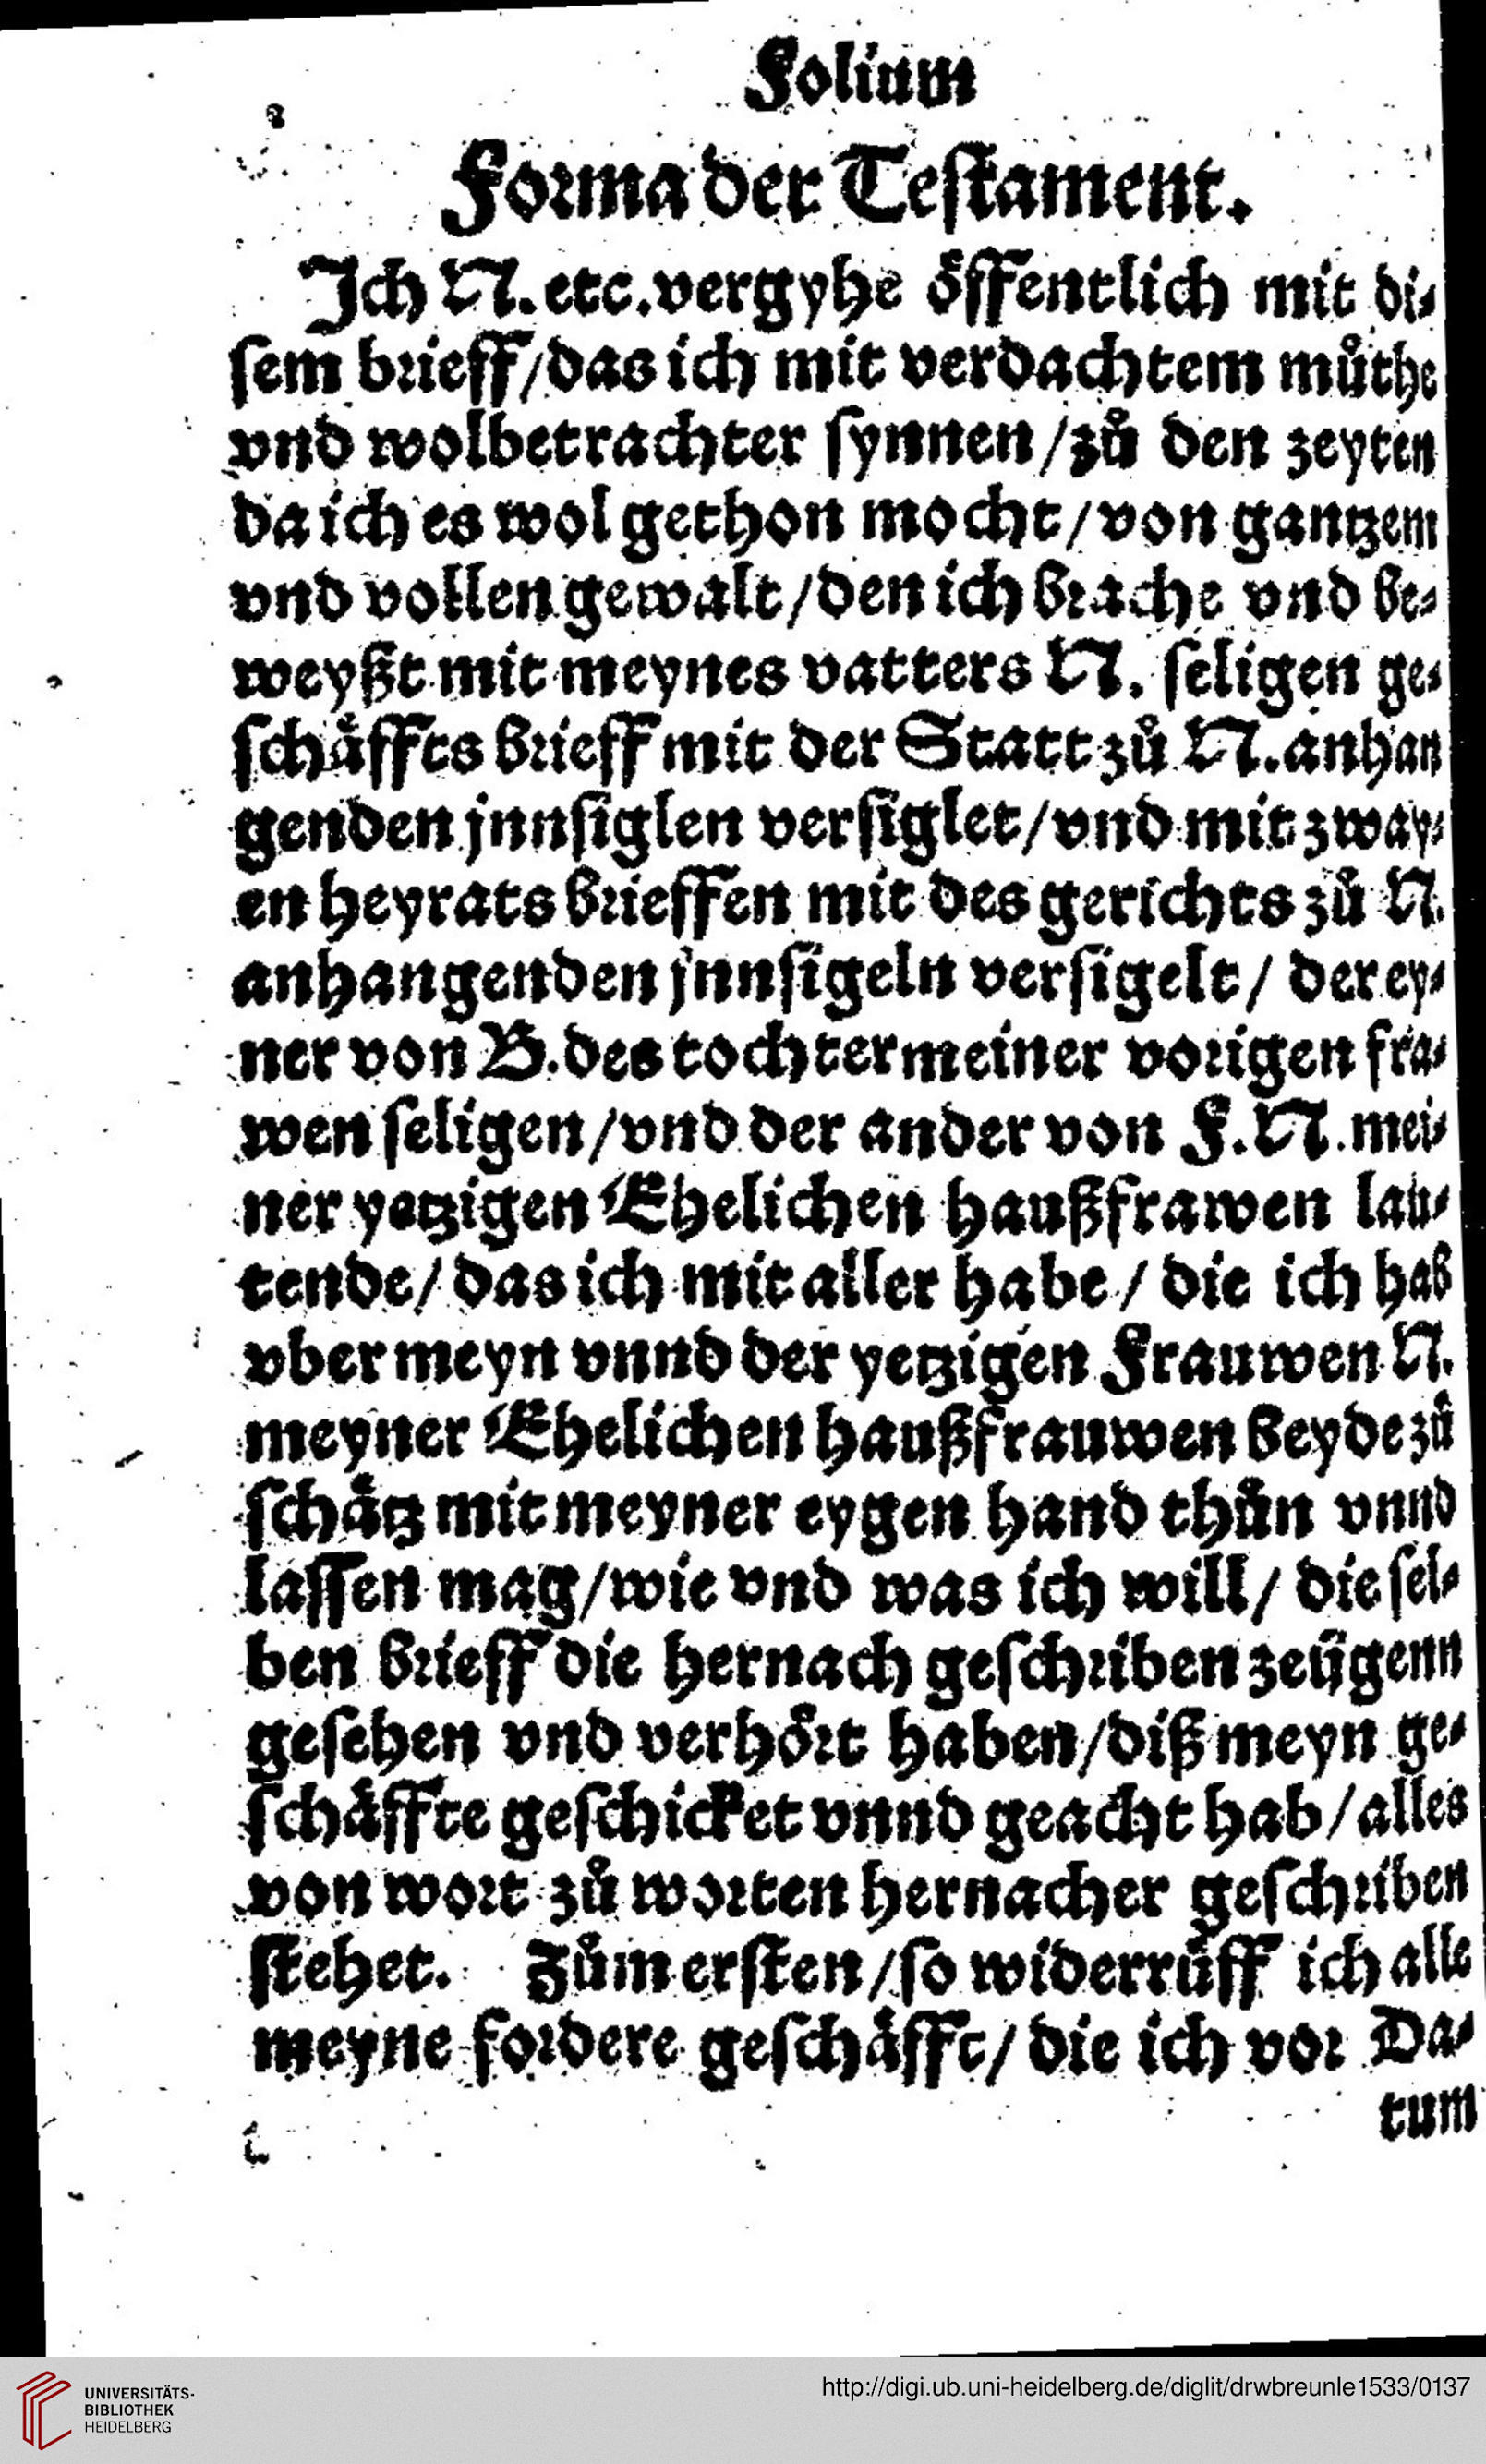 Folium
Forma der Testament.
Ich N. etc. vergyhe öffentlich mit di⸗
sem brieff / das ich mit verdachtem můthe
vnd wolbetrachter synnen / zů den zeyten
da ich es wol gethon mocht / von gantzem
vnd vollen gewalt / den ich brache vnd be⸗
weyßt mit meynes vatters N. seligen ge⸗
schäffts brieff mit der Statt zů N. anhan
genden jnnsiglen versiglet / vnd mit zway⸗
en heyrats brieffen mit des gerichts zů N.
anhangenden jnnsigeln versigelt / der ey⸗
ner von B. des tochter meiner vorigen fra⸗
wen seligen / vnd der ander von F. N. mei⸗
ner yetzigen Ehelichen haußfrawen lau⸗
tende / das ich mit aller habe / die ich hab
vber meyn vnnd der yetzigen Frauwen N.
meyner Ehelichen haußfrauwen beyde zů
schätz mit meyner eygen hand thůn vnnd
lassen mag / wie vnd was ich will / die sel⸗
ben brieff die hernach geschriben zeügenn
gesehen vnd verhört haben / diß meyn ge⸗
schäffte geschicket vnnd geacht hab / alles
von wort zů worten hernacher geschriben
stehet. Zům ersten / so widerrůff ich alle
meyne fordere geschäfft / die ich vor Da⸗
tum
UNIVERSITÄTS-
BIBLIOTHEK
HEIDELBERG
http://digi.ub.uni-heidelberg.de/diglit/drwbreunle1533/0137